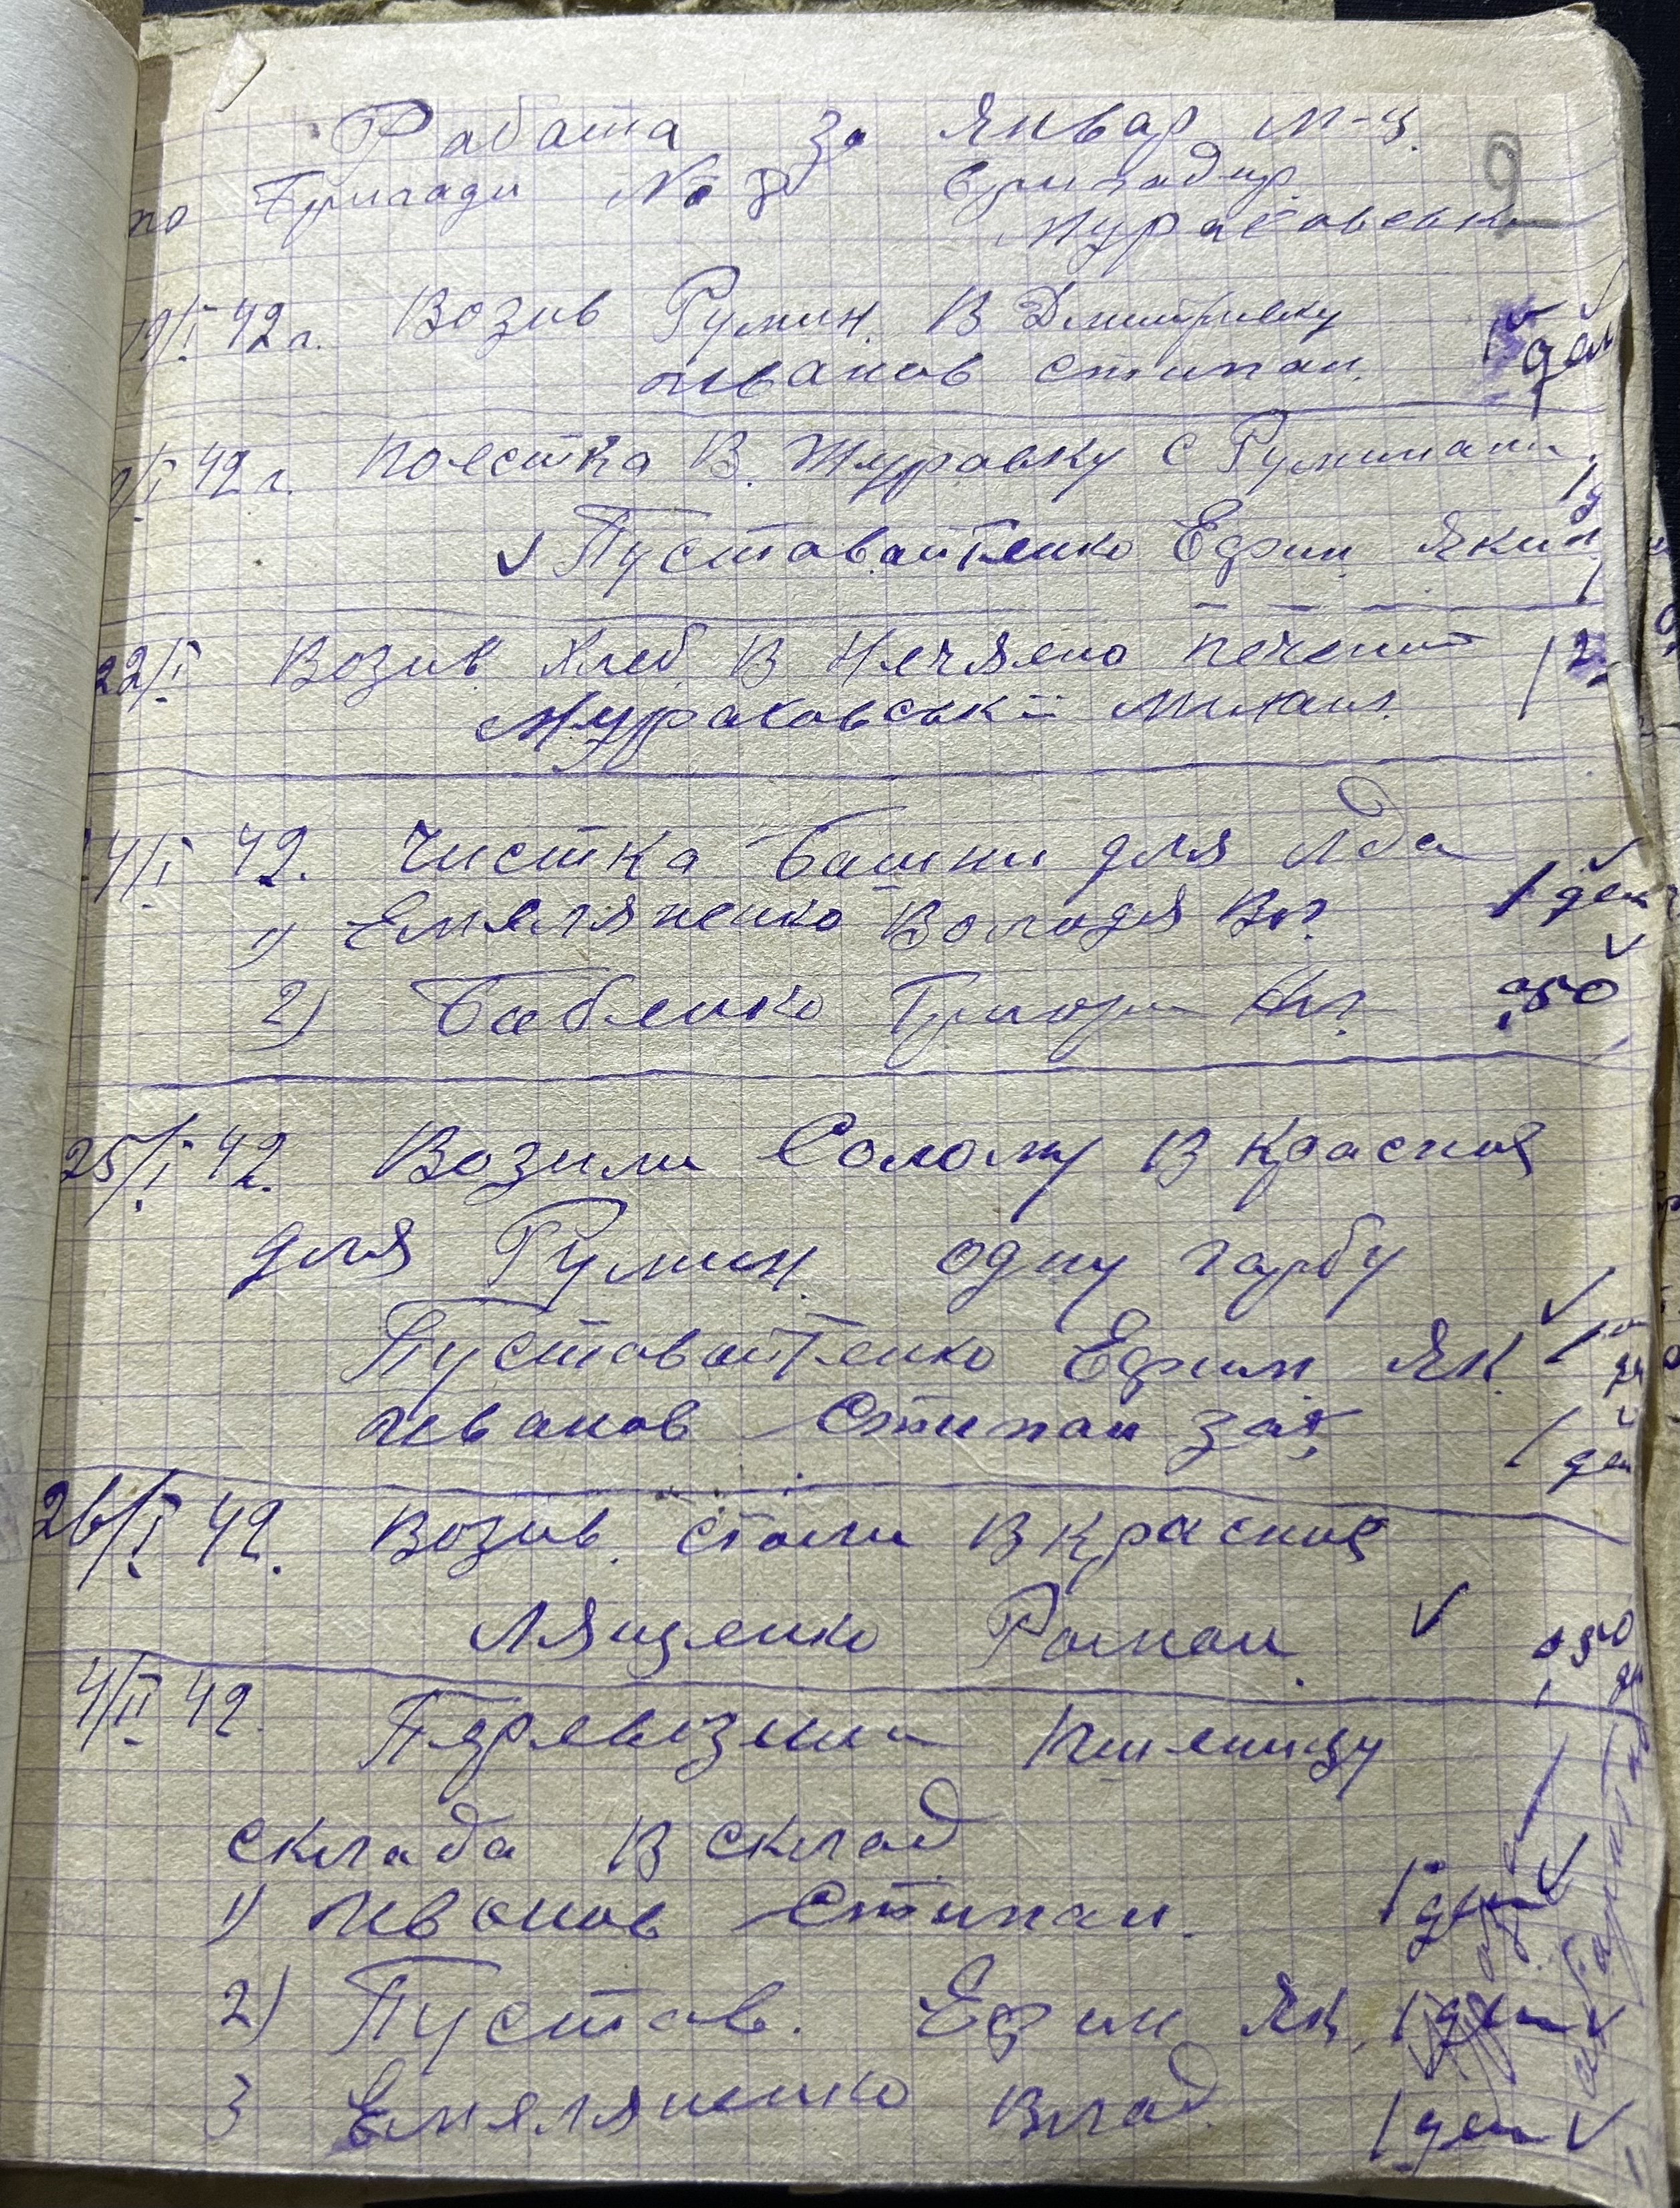 Работа за Январ м-ц.
9
по Бригади № 8 бригадир
Мураховськи
19/I 42 г. Возив Румин. В Дмитривку
Иванов Стипан. 1 ден
2/I 42 г. Поестка В. Журавку с Руминами
Пуставайтенко Ефим Яким 1
22/I Возив хлеб В Нечяяно печений 1 2
Мураховськй Михаил.
24/I 42. Чистка башни для Лда
1) Емеляненко Володя Вл. 1 ден
2) Бабленко Григори ,50
25/I 42. Возили Солому В Красная
для Румин. одну гарбу
Пуставайтенко Ефим. Як. 1 де
Иванов Стипан Зах 1 ден
26/I 42. Возив. Стали В Красная
Лященко Роман. ,50 дн
4/II 42. Перевозили Пшеницу
склада В склад
1) Иванов Стипан. 1 ден
2) Пустав. Ефим Як. 1 ден
3 Емеляненко Влад. 1 ден